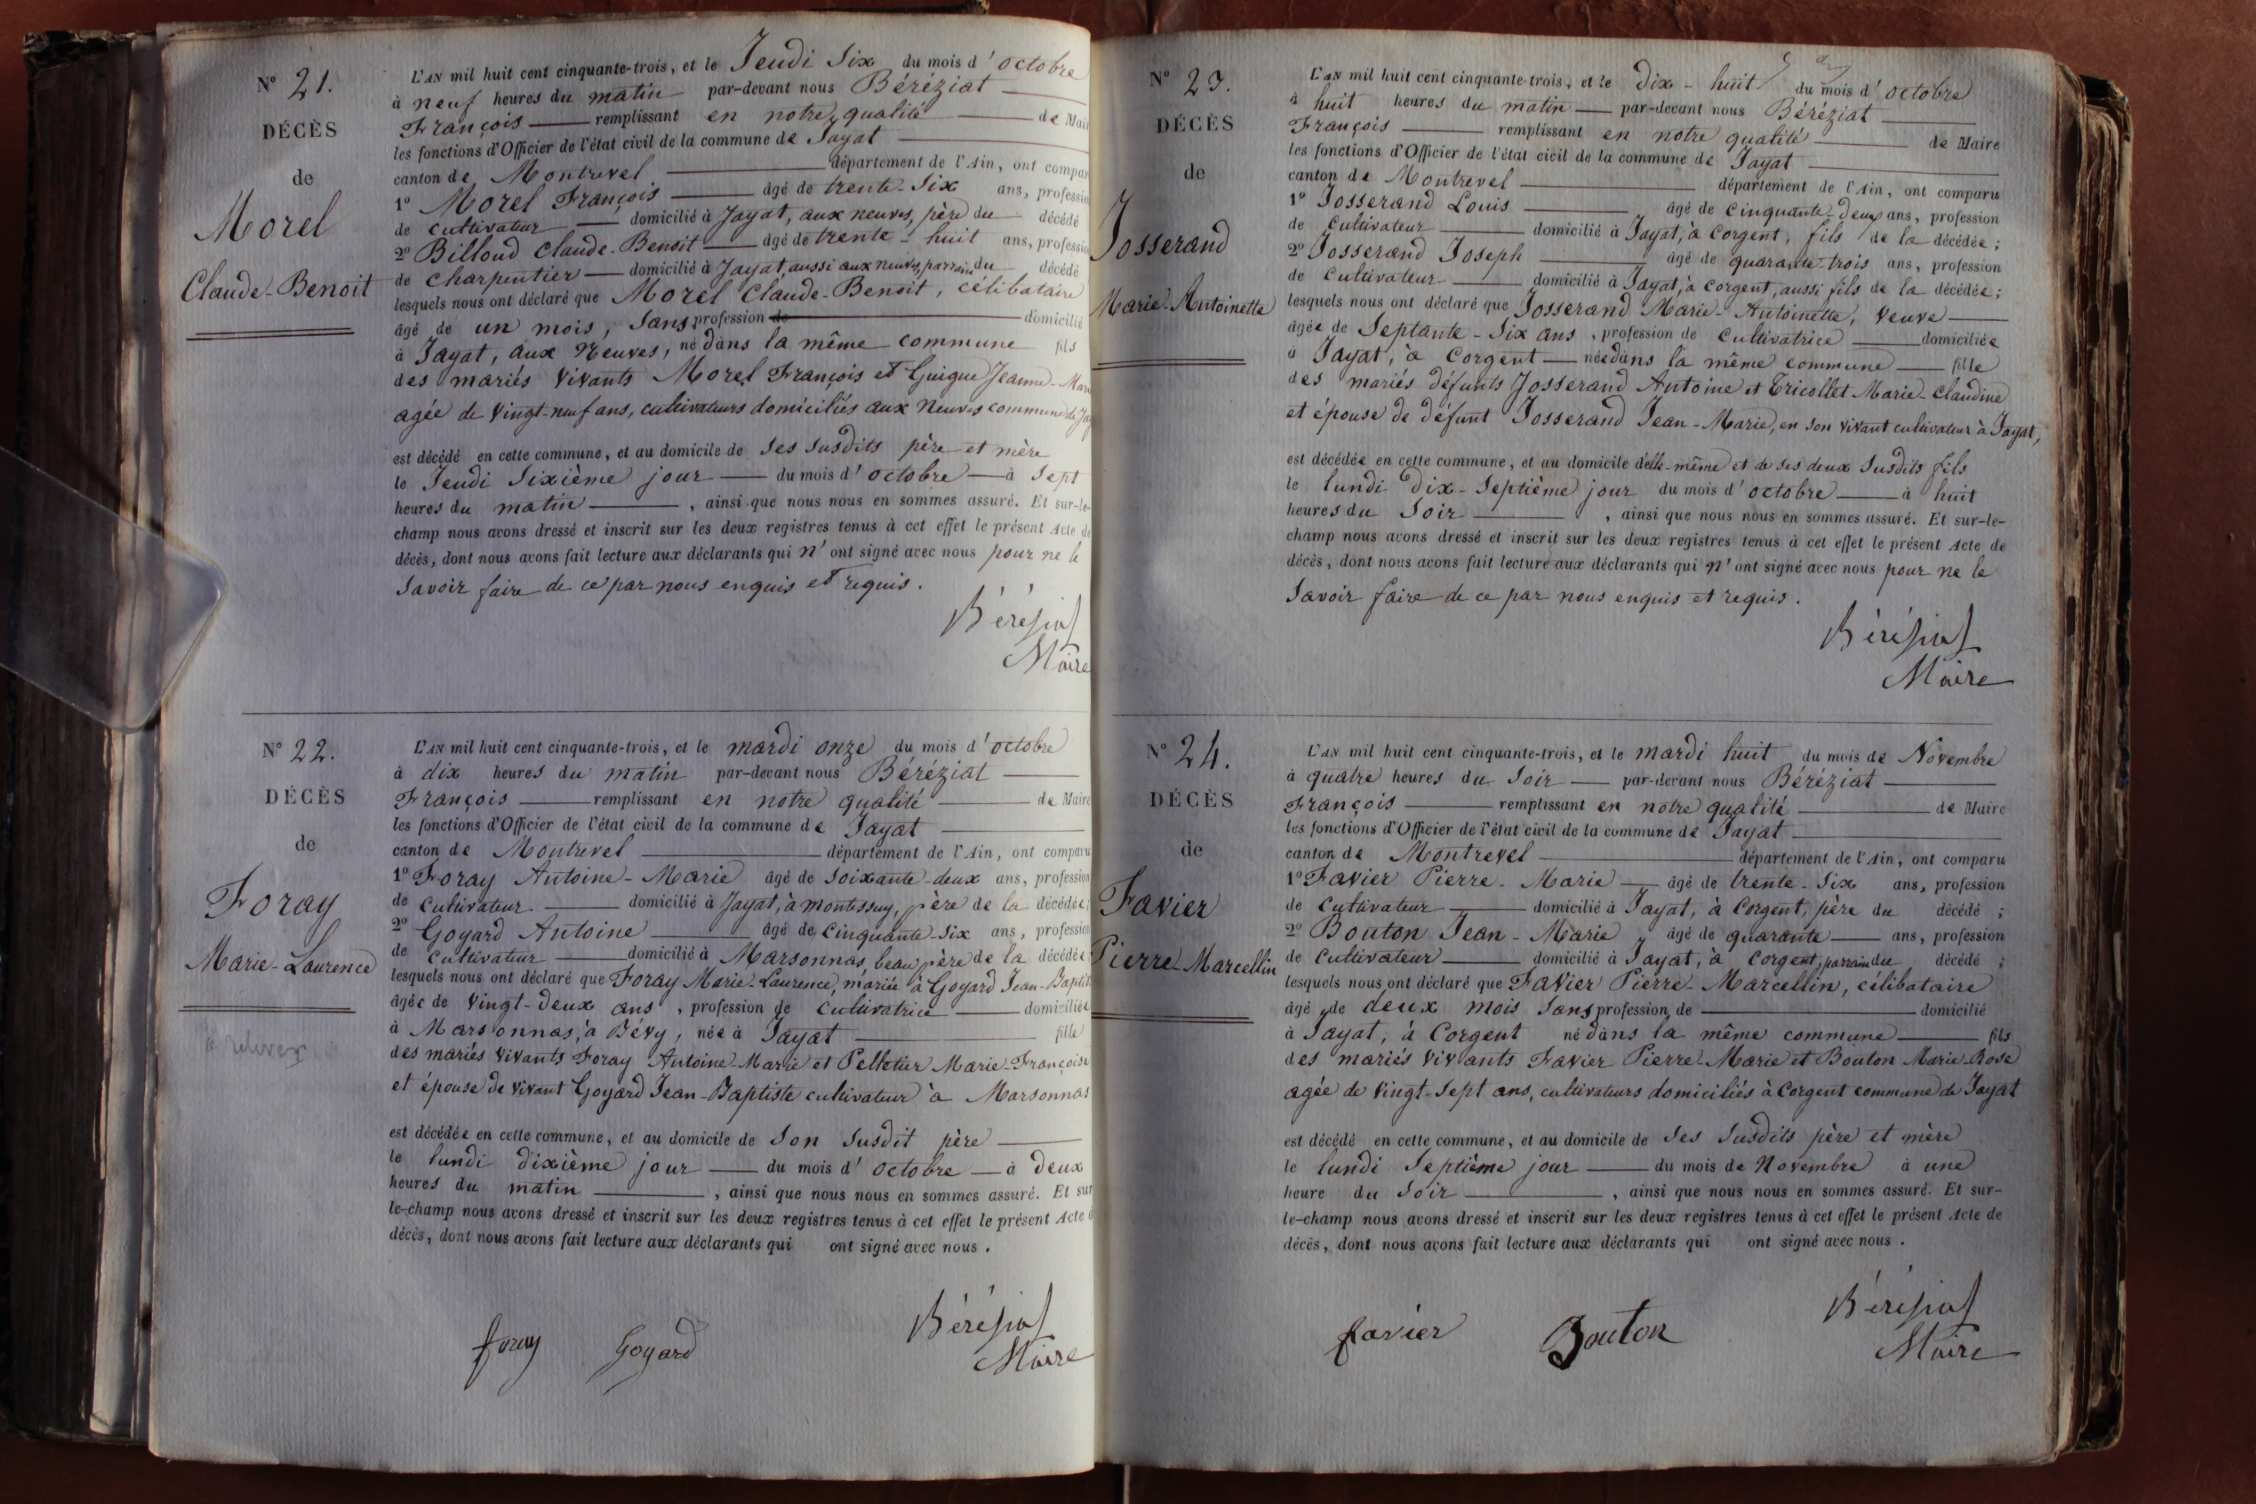 N° 21.
DÉCÈS
de
Morel
Claude-Benoit
L'AN mil huit cent cinquante-trois, et le Jeudi Six du mois d'octobre
à neuf heures du matin par-devant nous Béréziat
François remplissant en notre qualité de Mair
les fonctions d'Officier de l'état civil de la commune de Jayat
canton de Montrevel département de l'Ain, ont compar
1° Morel François âgé de trente-Six ans, profession
de cultivateur domicilié à Jayat, aux neuves, père du décédé
2° Billoud Claude-Benoit âgé de trente-huit ans, profession
de charpentier domicilié à Jayat, aussi aux neuves, parrain du décédé
lesquels nous ont déclaré que Morel Claude-Benoit, célibataire
âgé de un mois, Sans profession de domicilié
à Jayat, aux Neuves, né dans la même commune fils
des mariés vivants Morel François et Guigue Jeanne-Marie
agée de vingt-neuf ans, cultivateurs domiciliés aux Neuves commune de Jay
est décédé en cette commune, et au domicile de Ses Susdits père et mère
le Jeudi Sixième jour du mois d'octobre à Sept
heures du matin, ainsi que nous nous en sommes assuré. Et sur-le-
champ nous avons dressé et inscrit sur les deux registres tenus à cet effet le présent Acte de
décès, dont nous avons fait lecture aux déclarants qui n'ont signé avec nous pour ne le
Savoir faire de ce par nous enquis et requis.
Béréziat
Maire
N° 22.
DÉCÈS
de
Foray
Marie-Laurence
à relever
L'AN mil huit cent cinquante-trois, et le mardi onze du mois d'octobre
à dix heures du matin par-devant nous Béréziat
François remplissant en notre qualité de Maire
les fonctions d'Officier de l'état civil de la commune de Jayat
canton de Montrevel département de l'Ain, ont comparu
1° Foray Antoine-Marie âgé de Soixante-deux ans, profession
de cultivateur domicilié à Jayat, à montessuy, père de la décédée;
2° Goyard Antoine âgé de Cinquante-Six ans, profession
de cultivateur domicilié à Marsonnas, beau père de la décédée
lesquels nous ont déclaré que Foray Marie-Laurence, mariée à Goyard Jean-Baptist
âgée de vingt-deux ans, profession de cultivatrice domiciliée
à Marsonnas, à Bévy, née à Jayat fille
des mariés vivants Foray Antoine-Marie et Pelletier Marie-Françoise
et épouse de vivant Goyard Jean-Baptiste cultivateur à Marsonnas
est décédée en cette commune, et au domicile de Son Susdit père
le lundi dixième jour du mois d'octobre à deux
heures du matin, ainsi que nous nous en sommes assuré. Et sur
le-champ nous avons dressé et inscrit sur les deux registres tenus à cet effet le présent Acte d
décès, dont nous avons fait lecture aux déclarants qui ont signé avec nous.
foray Goyard Béréziat
Maire
N° 23.
DÉCÈS
de
Josserand
Marie-Antoinette
L'AN mil huit cent cinquante-trois, et le dix-huit du mois d'octobre
à huit heures du matin par-devant nous Béréziat
François remplissant en notre qualité de Maire
les fonctions d'Officier de l'état civil de la commune de Jayat
canton de Montrevel département de l'Ain, ont comparu
1° Josserand Louis âgé de cinquante-deux ans, profession
de cultivateur domicilié à Jayat, à Corgent, fils de la décédée;
2° Josserand Joseph âgé de quarante-trois ans, profession
de cultivateur domicilié à Jayat, à Corgent, aussi fils de la décédée;
lesquels nous ont déclaré que Josserand Marie-Antoinette, veuve
âgée de Septante-Six ans, profession de cultivatrice domiciliée
à Jayat, à Corgent née dans la même commune fille
des mariés défunts Josserand Antoine et Tricollet Marie-Claudine
et épouse de défunt Josserand Jean-Marie, en Son vivant cultivateur à Jayat,
est décédée en cette commune, et au domicile d'elle-même et de ses deux Susdits fils
le lundi dix-Septième jour du mois d'octobre à huit
heures du Soir, ainsi que nous nous en sommes assuré. Et sur-le-
champ nous avons dressé et inscrit sur les deux registres tenus à cet effet le présent Acte de
décès, dont nous avons fait lecture aux déclarants qui n'ont signé avec nous pour ne le
Savoir faire de ce par nous enquis et requis.
Béréziat
Maire
N° 24.
DÉCÈS
de
Favier
Pierre-Marcellin
L'AN mil huit cent cinquante-trois, et le mardi huit du mois de Novembre
à quatre heures du Soir par-devant nous Béréziat
François remplissant en notre qualité de Maire
les fonctions d'Officier de l'état civil de la commune de Jayat
canton de Montrevel département de l'Ain, ont comparu
1° Favier Pierre-Marie âgé de trente-Six ans, profession
de cultivateur domicilié à Jayat, à Corgent, père du décédé;
2° Bouton Jean-Marie, âgé de quarante ans, profession
de cultivateur domicilié à Jayat, à Corgent, parrain du décédé;
lesquels nous ont déclaré que Favier Pierre-Marcellin, célibataire
âgé de deux mois Sans profession de domicilié
à Jayat, à Corgent né dans la même commune fils
des mariés vivants Favier Pierre-Marie et Bouton Marie-Rose
agée de vingt-Sept ans, cultivateurs domiciliés à Corgent commune de Jayat
est décédé en cette commune, et au domicile de Ses Susdits père et mère
le lundi Septième jour du mois de Novembre à une
heure du Soir, ainsi que nous nous en sommes assuré. Et sur-
le-champ nous avons dressé et inscrit sur les deux registres tenus à cet effet le présent Acte de
décès, dont nous avons fait lecture aux déclarants qui ont signé avec nous.
favier Bouton Béréziat
Maire